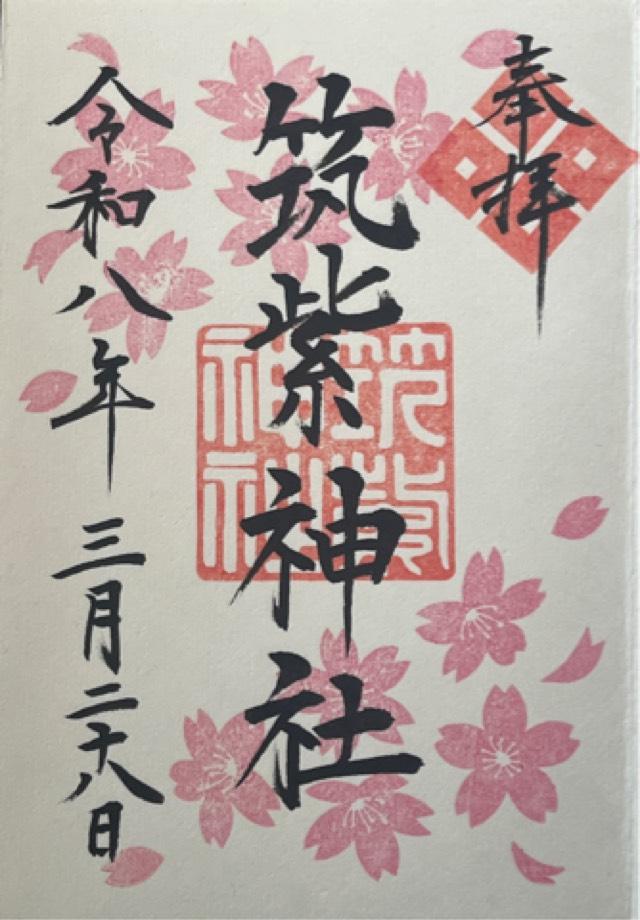 奉拝
筑紫神社
令和八年 三月二十八日